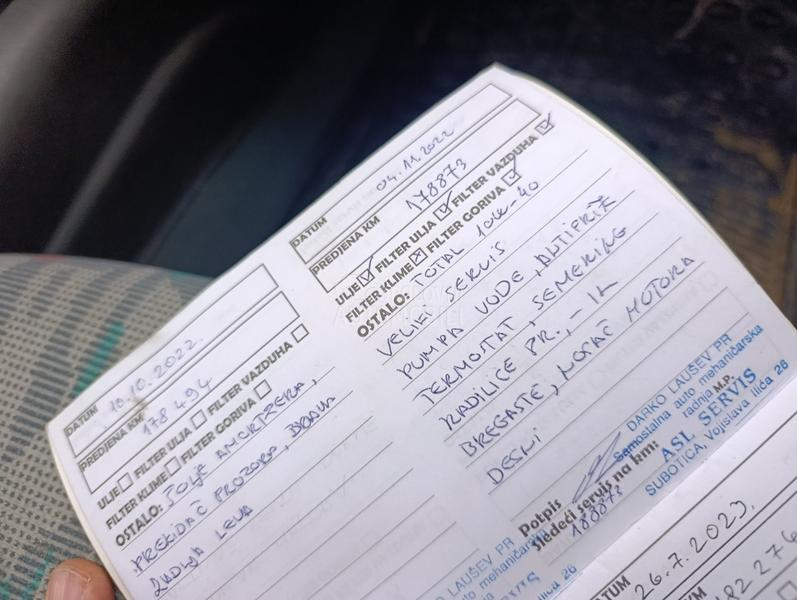 DATUM 10.10.2022.
PREDJENA KM 178494
ULJE FILTER ULJA FILTER VAZDUHA
FILTER KLIME FILTER GORIVA
OSTALO: ŠOLJE AMORTIZERA,
PREKIDAČ PROZORA, BRAVA
ZADNJA LEVA
LAUŠEV PR
DATUM 04.11.2022
PREDJENA KM 178873
ULJE FILTER ULJA FILTER VAZDUHA
FILTER KLIME FILTER GORIVA
OSTALO: TOTAL 10W-40
VELIKI SERVIS
PUMPA VODE, ANTIFRIZ
TERMOSTAT, SEMERING
RADILICE PR.,
BREGASTE, NOSAČ MOTORA
DESNI
DARKO LAUŠEV PR
Samostalna auto mehaničarska
radnja M.P.
ASL SERVIS
SUBOTICA, Vojislava Ilića 26
Potpis
Sledeći servis na km:
188873
DATUM 26.7.2023.
82276